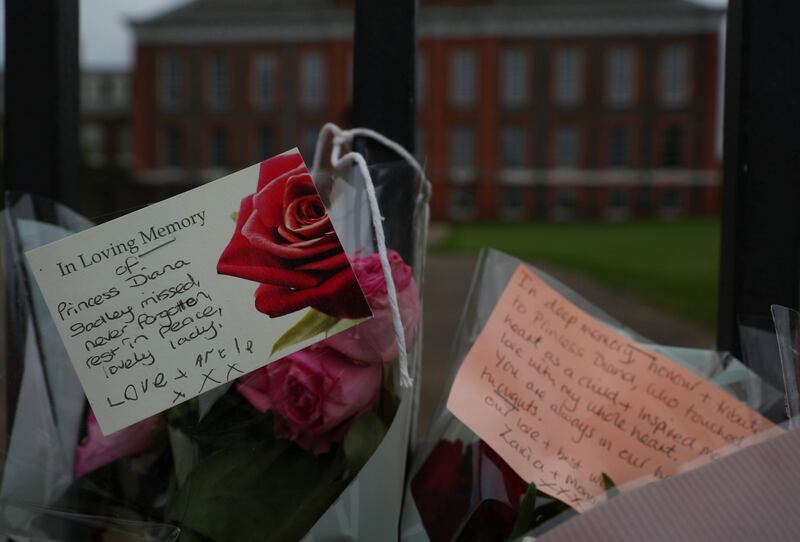 In Loving Memory
of
Princess Diana
Sadly missed,
never forgotten,
rest in peace,
lovely lady.
Love +
x x x
In deep memory, honour + tribute
to Princess Diana, who touched
heart as a child + inspired me
love with my whole heart.
You are always in our
thoughts.
our love + best
Zavia + Mom
xxx